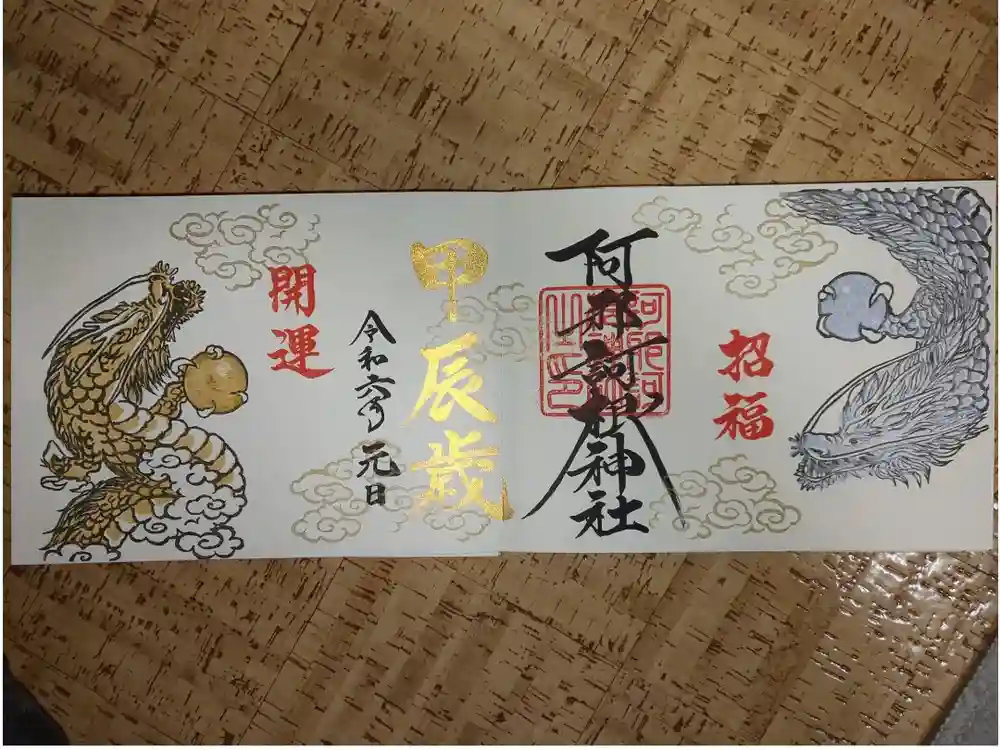 招福
阿邪訶根神社
甲辰歳
令和六年 元日
開運